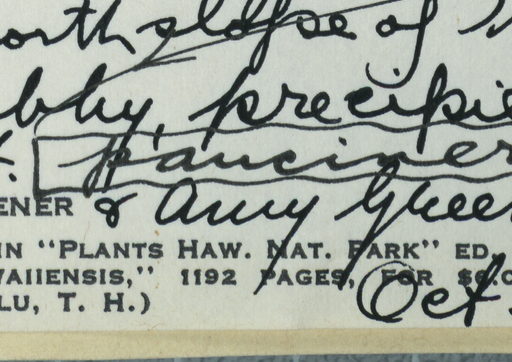 north slope of
bby, precipi
f. pauciner
ENER & Amy Green
IN "PLANTS HAW. NAT. PARK" ED.
VAIIENSIS," 1192 PAGES, FOR $6.0
LU, T. H.) Oct.